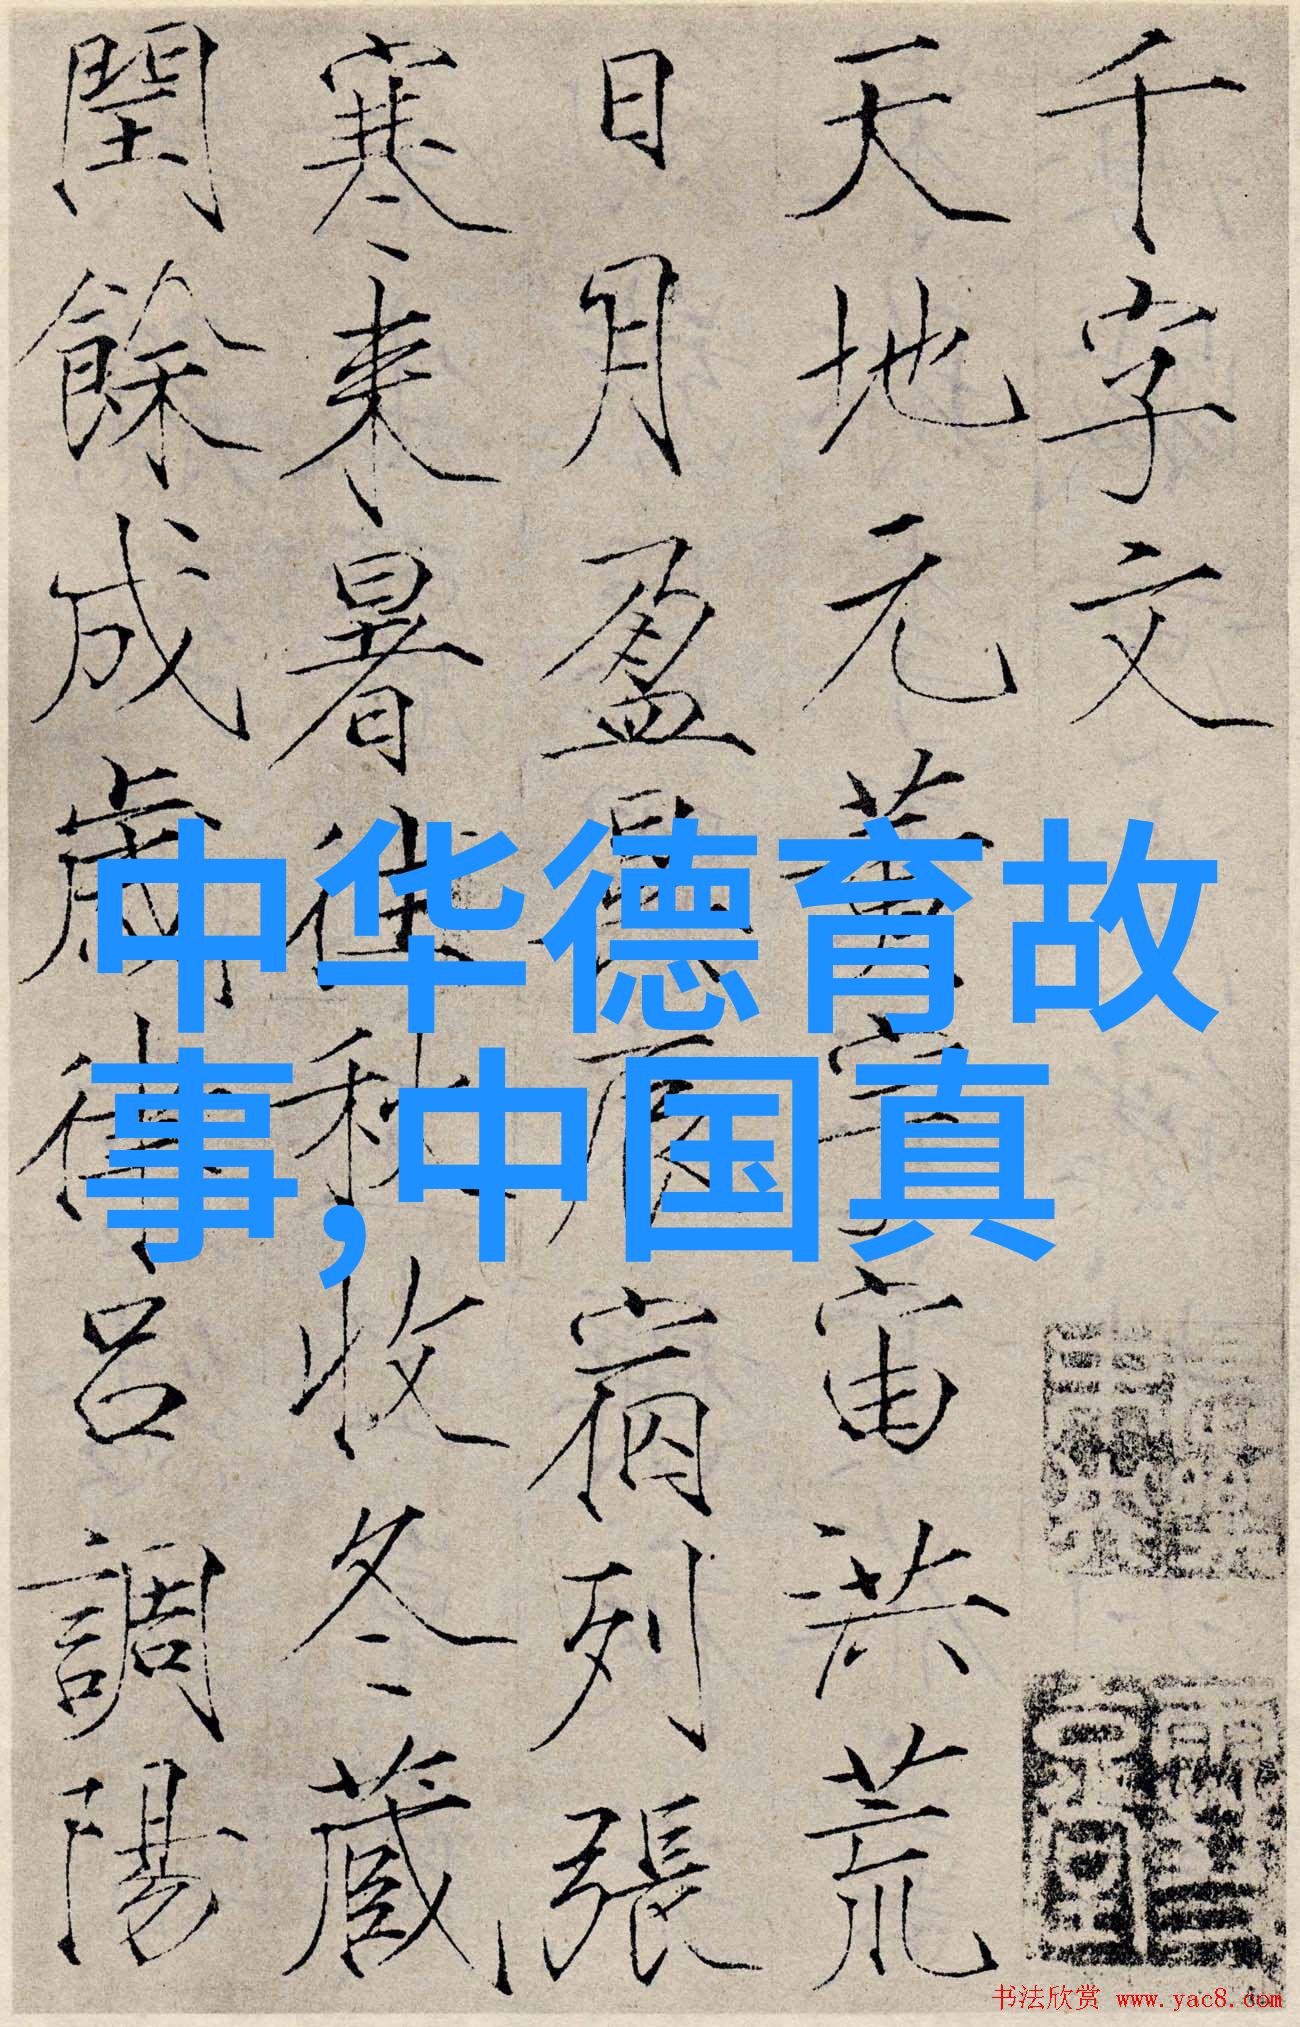 千字文
天地元黄宇宙洪荒
日月盈昃辰宿列張
寒来暑往秋收冬蔵
閏餘成歳律呂調陽
中华德育故
事,中国真
书法欣赏 www.yac8.com